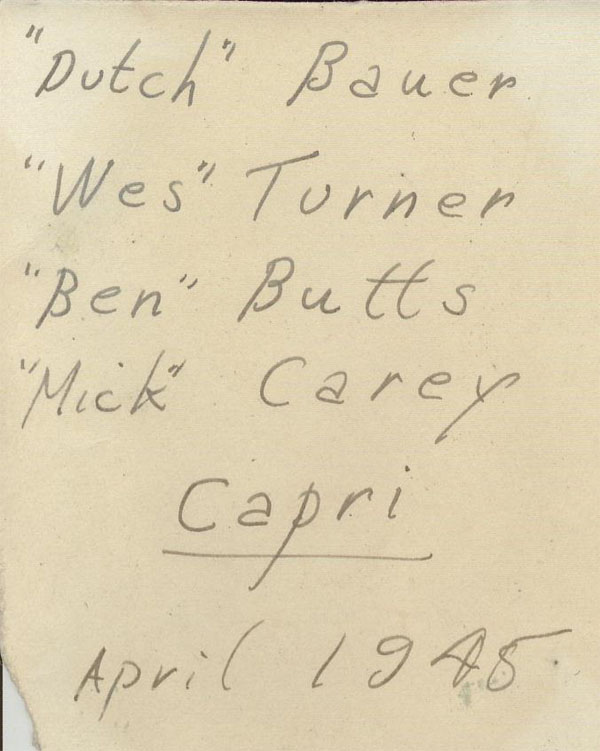 "Dutch" Bauer
"Wes" Turner
"Ben" Butts
"Mick" Carey
Capri
April 1945